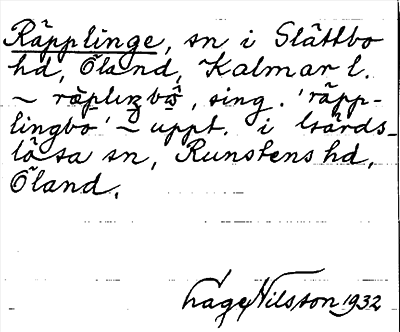 Räpplinge, sn i Slättbo
hd, Öland, Kalmar l.
~ , sing. 'räpp-
lingbo' ~ uppt. i Gärds-
lösa sn, Runstens hd,
Öland.
Nilsson 1932